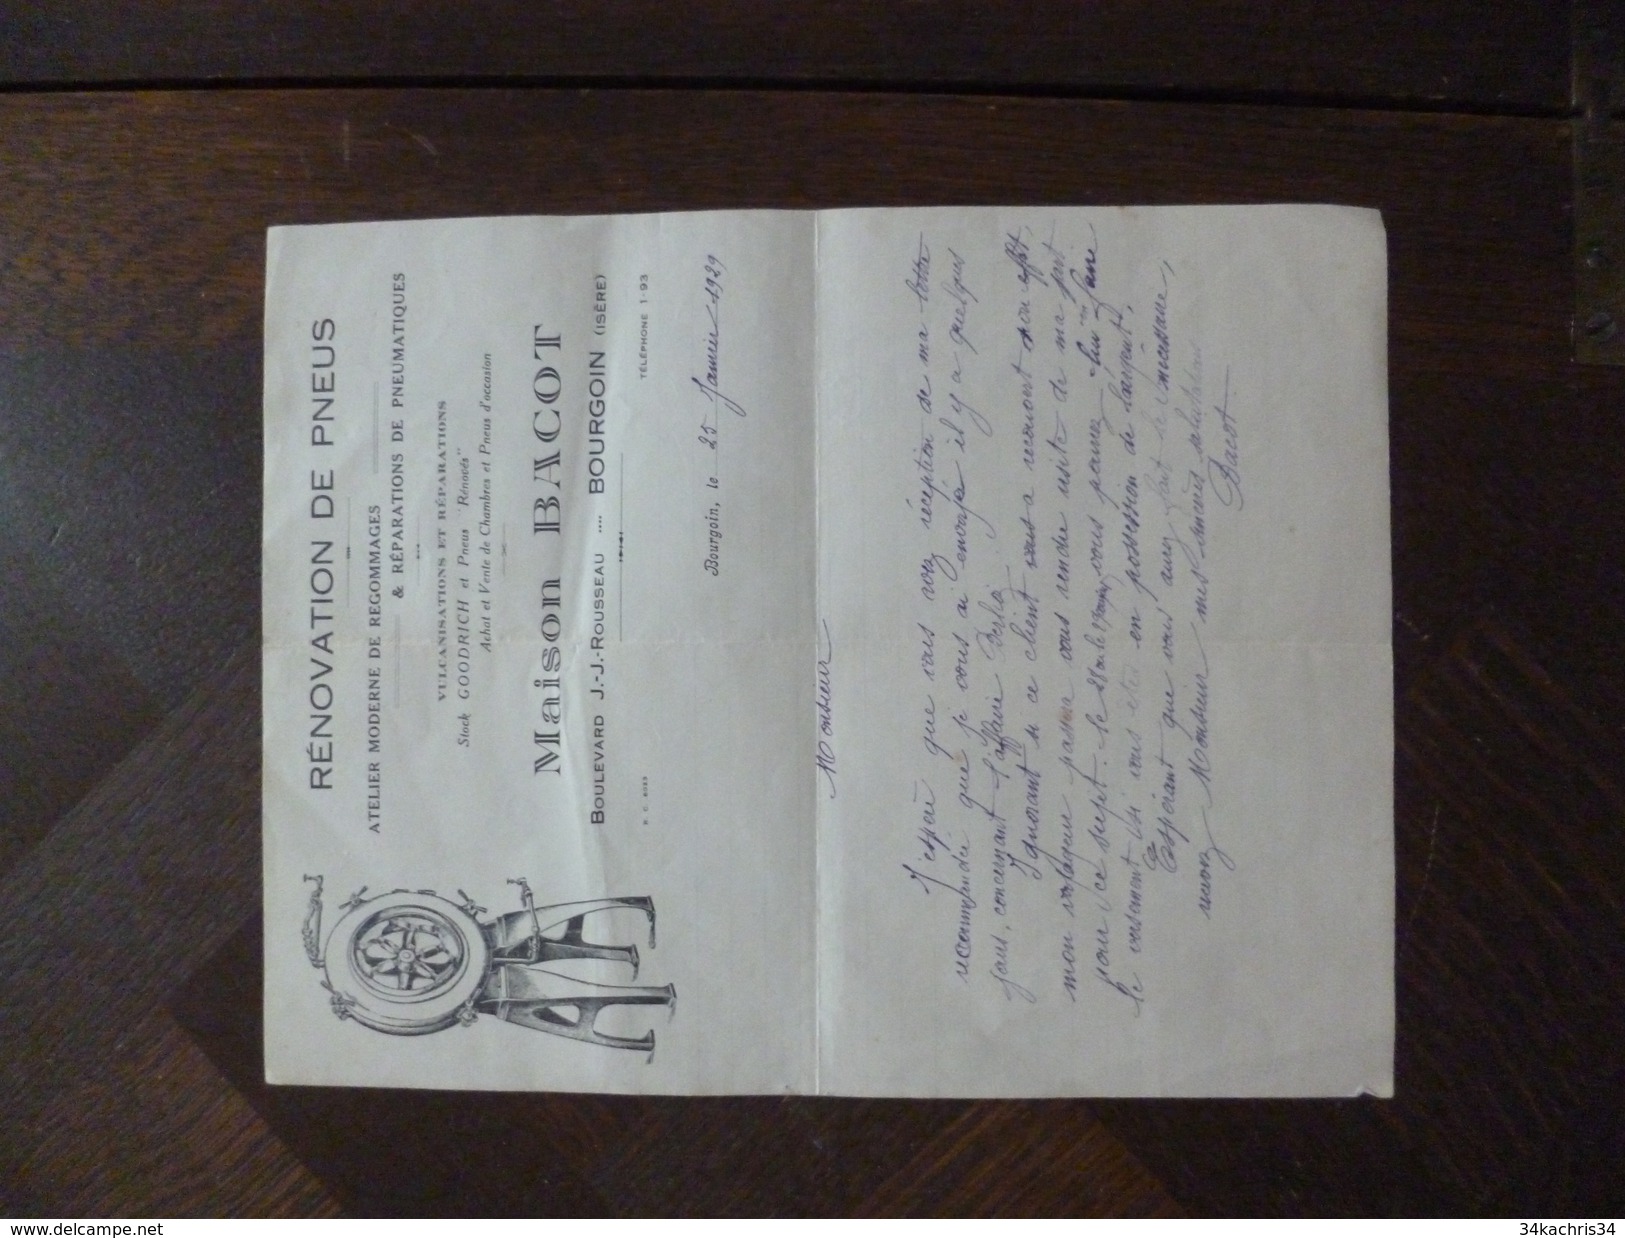 RÉNOVATION DE PNEUS
ATELIER MODERNE DE REGOMMAGES
& RÉPARATIONS DE PNEUMATIQUES
VULCANISATIONS ET RÉPARATIONS
Stock GOODRICH et Pneus "Rénovés"
Achat et Vente de Chambres et Pneus d'occasion
Maison BACOT
BOULEVARD J.-J.-ROUSSEAU .... BOURGOIN (ISÈRE)
R. C. 8023 TÉLÉPHONE 1-93
Bourgoin, le 25 Janvier 1929
Monsieur
J'espère que vous avez réception de ma lettre
recommandée que je vous ai envoyée il y a quelques
jours, concernant l'affaire Berlio
Ignorant si ce client vous a recouvert son effet,
mon voyageur passera vous rendre visite de ma part
pour ce sujet. le 28 ou le 29 vous pourrez lui en faire
le versement si vous êtes en possession de l'argent,
Espérant que vous aurez fait le nécessaire,
recevez Monsieur mes sincères salutations
Bacot
www.delcampe.net
34kachris34